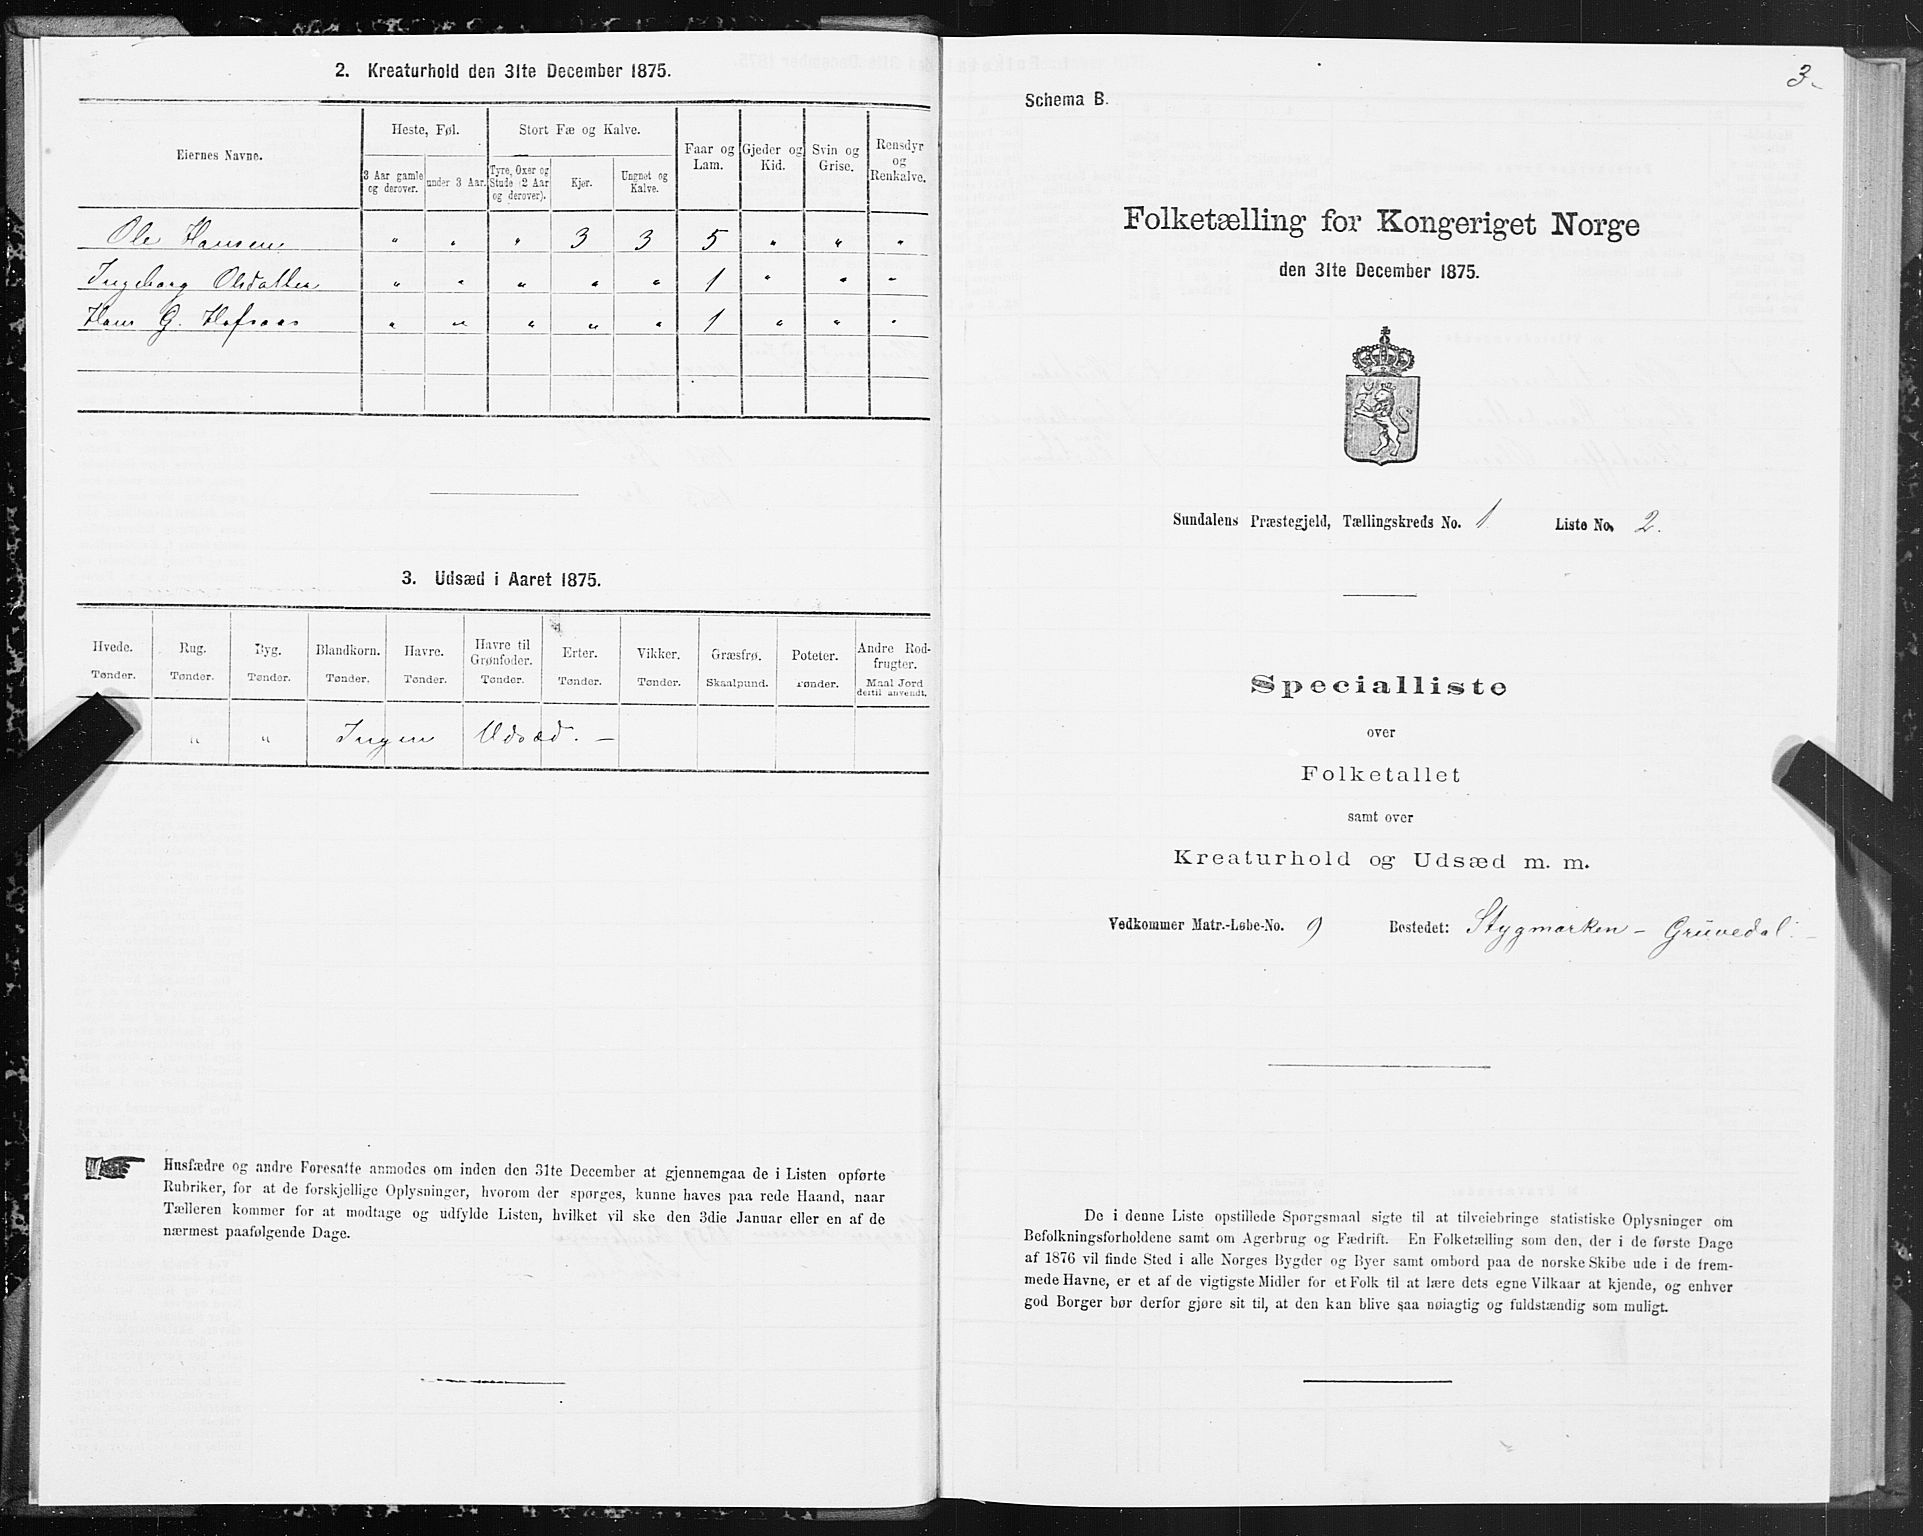 2. Kreaturhold den 31te December 1875.
Eiernes Navne.
Heste, Føl.
Stort Fæ og Kalve.
Faar og Lam.
Gjeder og Kid.
Svin og Grise.
Rensdyr og Renkalve.
3 Aar gamle og derover.
under 3 Aar.
Tyre, Oxer og Stude (2 Aar og derover).
Kjør.
Ungnøt og Kalve.
Ole Hansen " " " 3 3 5 " " "
Ingeborg Olsdatter " " " " " 1 " " "
Hans G. Hafsaas " " " " " 1 " " "
3. Udsæd i Aaret 1875.
Hvede. Rug. Byg. Blandkorn. Havre. Havre til Grønfoder. Erter. Vikker. Græsfrø. Poteter. Andre Rodfrugter.
Tønder. Tønder. Tønder. Tønder. Tønder. Tønder. Tønder. Tønder. Skaalpund. Tønder. Maal Jord dertil anvendt.
" " Ingen Udsæd. —
Husfædre og andre Foresatte anmodes om inden den 31te December at gjennemgaa de i Listen opførte
Rubriker, for at de forskjellige Oplysninger, hvorom der spørges, kunne haves paa rede Haand, naar
Tælleren kommer for at modtage og udfylde Listen, hvilket vil ske den 3die Januar eller en af de
nærmest paafølgende Dage.
3.
Schema B.
Folketælling for Kongeriget Norge
den 31te December 1875.
Sundalens Præstegjeld, Tællingskreds No. 1. Liste No. 2.
Specialliste
over
Folketallet
samt over
Kreaturhold og Udsæd m. m.
Vedkommer Matr.-Løbe-No. 9 Bostedet: Stygmarken - Gruvedal. -
De i denne Liste opstillede Spørgsmaal sigte til at tilveiebringe statistiske Oplysninger om
Befolkningsforholdene samt om Agerbrug og Fædrift. En Folketælling som den, der i de første Dage
af 1876 vil finde Sted i alle Norges Bygder og Byer samt ombord paa de norske Skibe ude i de frem-
mede Havne, er et af de vigtigste Midler for et Folk til at lære dets egne Vilkaar at kjende, og enhver
god Borger bør derfor gjøre sit til, at den kan blive saa nøiagtig og fuldstændig som muligt.